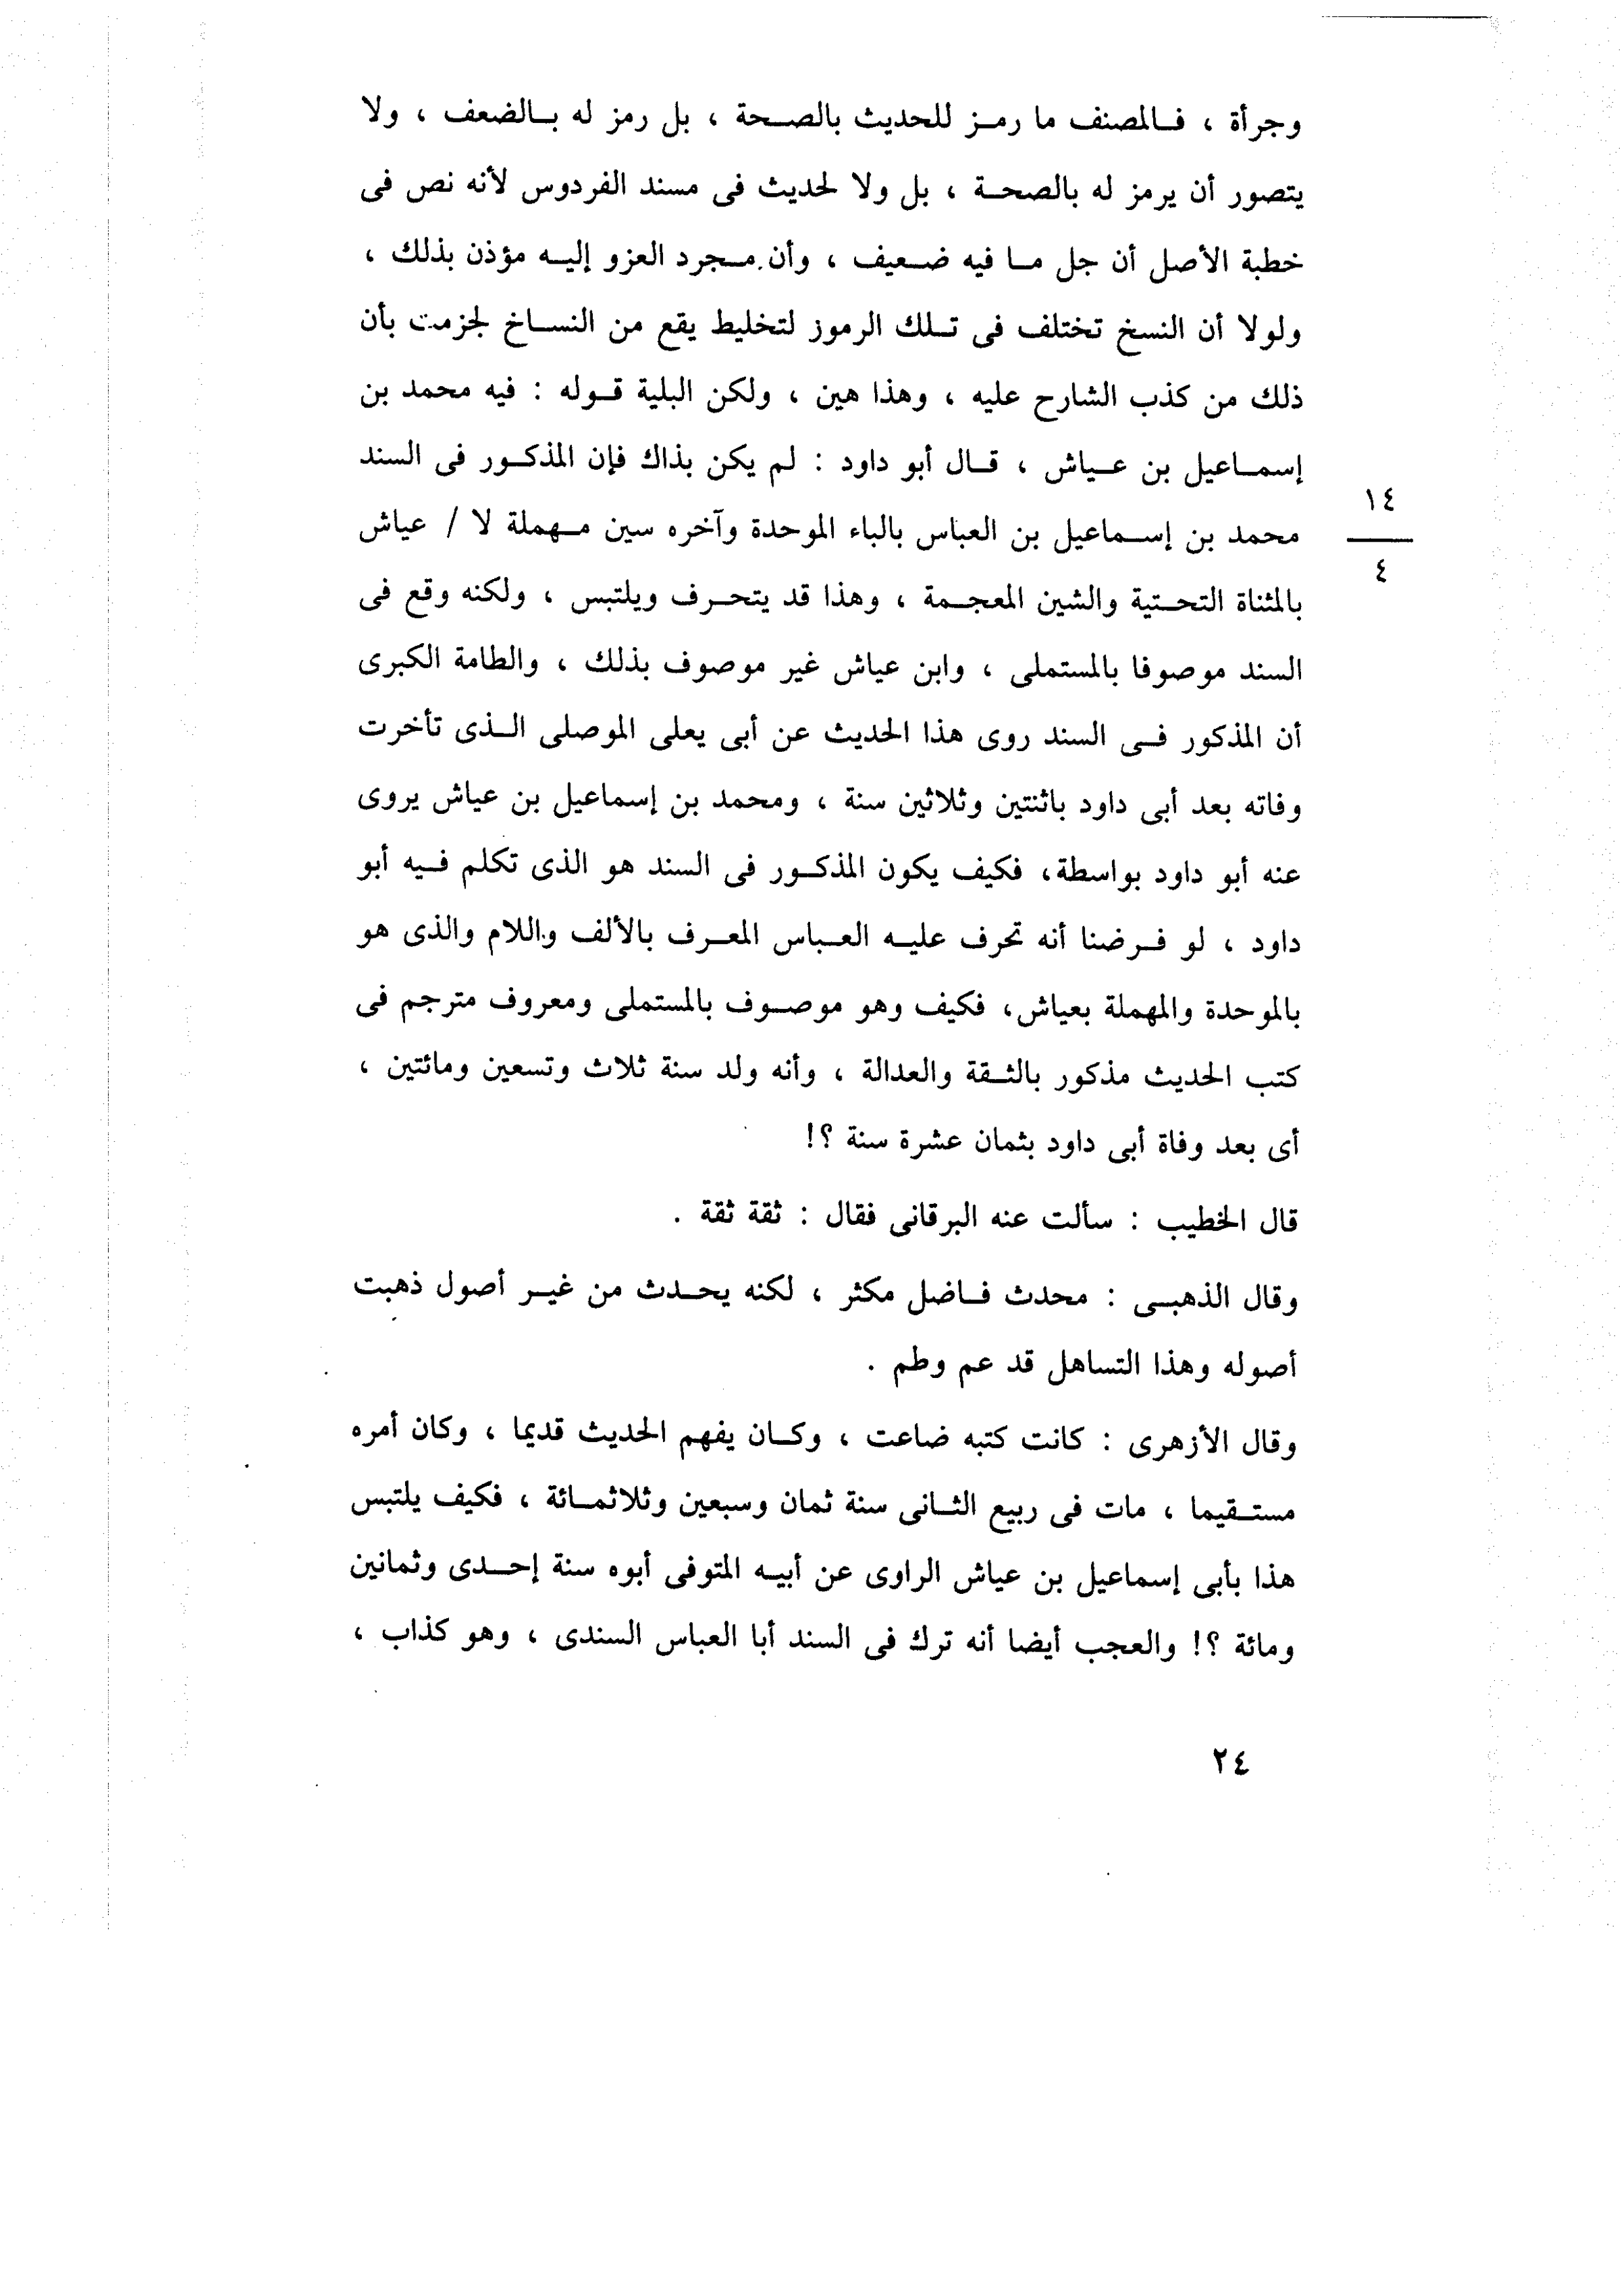 وجرأة ، فالمصنف ما رمز للحديث بالصحة ، بل رمز له بالضعف ، ولا
يتصور أن يرمز له بالصحة ، بل ولا لحديث فى مسند الفردوس لأنه نص فى
خطبة الأصل أن جل ما فيه ضعيف ، وأن مجرد العزو إليه مؤذن بذلك ،
ولولا أن النسخ تختلف فى تلك الرموز لتخليط يقع من النساخ لجزمت بأن
ذلك من كذب الشارح عليه ، وهذا هين ، ولكن البلية قوله : فيه محمد بن
إسماعيل بن عياش ، قال أبو داود : لم يكن بذاك فإن المذكور فى السند
محمد بن إسماعيل بن العباس بالباء الموحدة وآخره سين مهملة لا / عياش
١٤
٤
بالمثناة التحتية والشين المعجمة ، وهذا قد يتحرف ويلتبس ، ولكنه وقع فى
السند موصوفا بالمستملى ، وابن عياش غير موصوف بذلك ، والطامة الكبرى
أن المذكور فى السند روى هذا الحديث عن أبى يعلى الموصلى الذى تأخرت
وفاته بعد أبى داود باثنتين وثلاثين سنة ، ومحمد بن إسماعيل بن عياش يروى
عنه أبو داود بواسطة، فكيف يكون المذكور فى السند هو الذى تكلم فيه أبو
داود ، لو فرضنا أنه تحرف عليه العباس المعرف بالألف واللام والذى هو
بالموحدة والمهملة بعياش، فكيف وهو موصوف بالمستملى ومعروف مترجم فى
كتب الحديث مذكور بالثقة والعدالة ، وأنه ولد سنة ثلاث وتسعين ومائتين ،
أى بعد وفاة أبى داود بثمان عشرة سنة ؟!
قال الخطيب : سألت عنه البرقانى فقال : ثقة ثقة .
وقال الذهبى : محدث فاضل مكثر ، لكنه يحدث من غير أصول ذهبت
أصوله وهذا التساهل قد عم وطم .
وقال الأزهرى : كانت كتبه ضاعت ، وكان يفهم الحديث قديما ، وكان أمره
مستقيما ، مات فى ربيع الثانى سنة ثمان وسبعين وثلاثمائة ، فكيف يلتبس
هذا بأبى إسماعيل بن عياش الراوى عن أبيه المتوفى أبوه سنة إحدى وثمانين
ومائة ؟! والعجب أيضا أنه ترك فى السند أبا العباس السندى ، وهو كذاب ،
٢٤